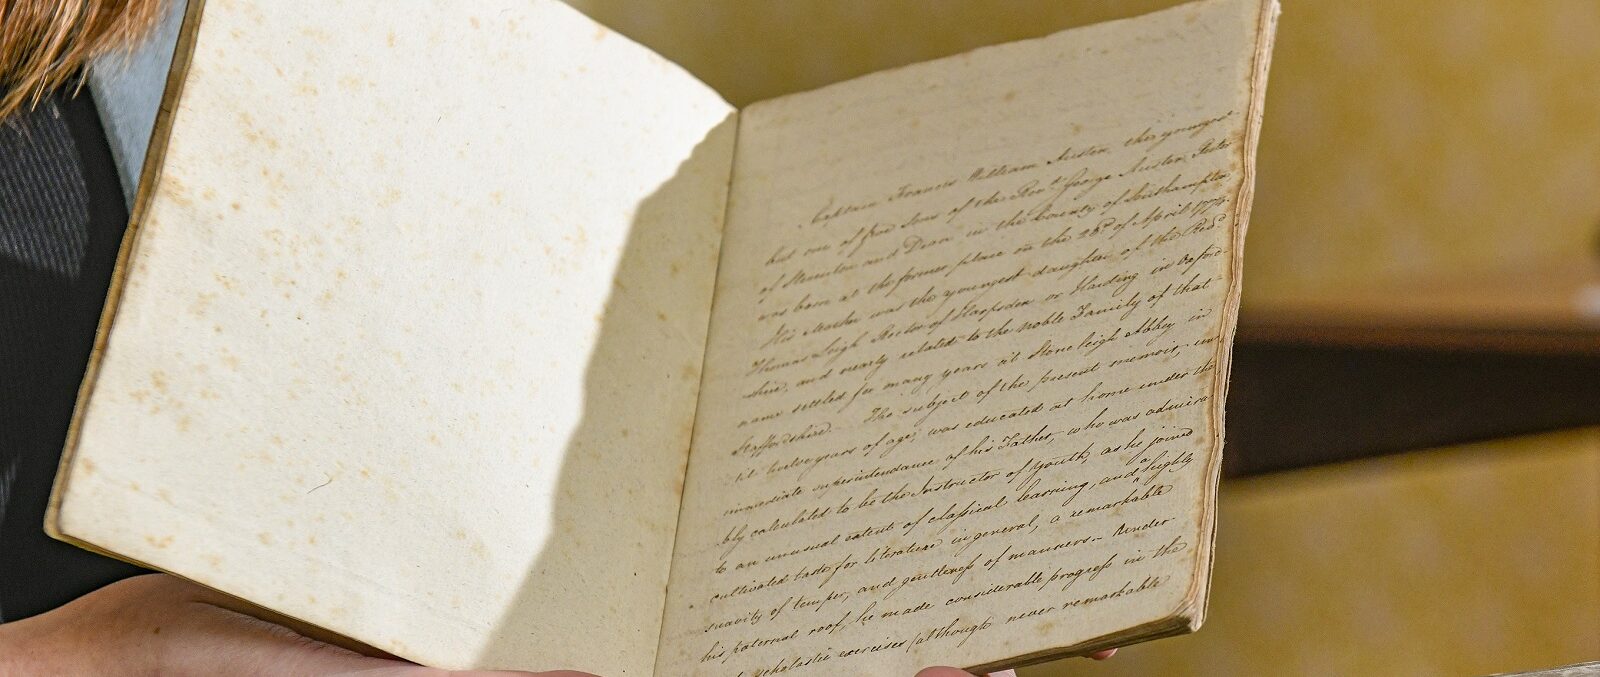 Captain Francis William Austen, the youngest
but one of five Sons of the Revd. George Austen Rector
of Steventon and Deane in the County of Southampton
was born at the former place on the 23d of April 1774.
His Mother was the youngest daughter of the Revd
Thomas Leigh Rector of Harpsden or Harding in Oxford-
shire, and nearly related to the noble Family of that
name settled for many years at Stoneleigh Abbey in
Staffordshire. The subject of the present memoir, un-
til twelve years of age, was educated at home under the
immediate superintendance of his Father, who was admira
bly calculated to be the Instructor of Youth, as he joined
to an unusual extent of classical learning, and a highly
cultivated taste for literature in general, a remarkable
suavity of temper, and gentleness of manners. Under
his paternal roof, he made considerable progress in the
scholastic exercises (although never remarkable